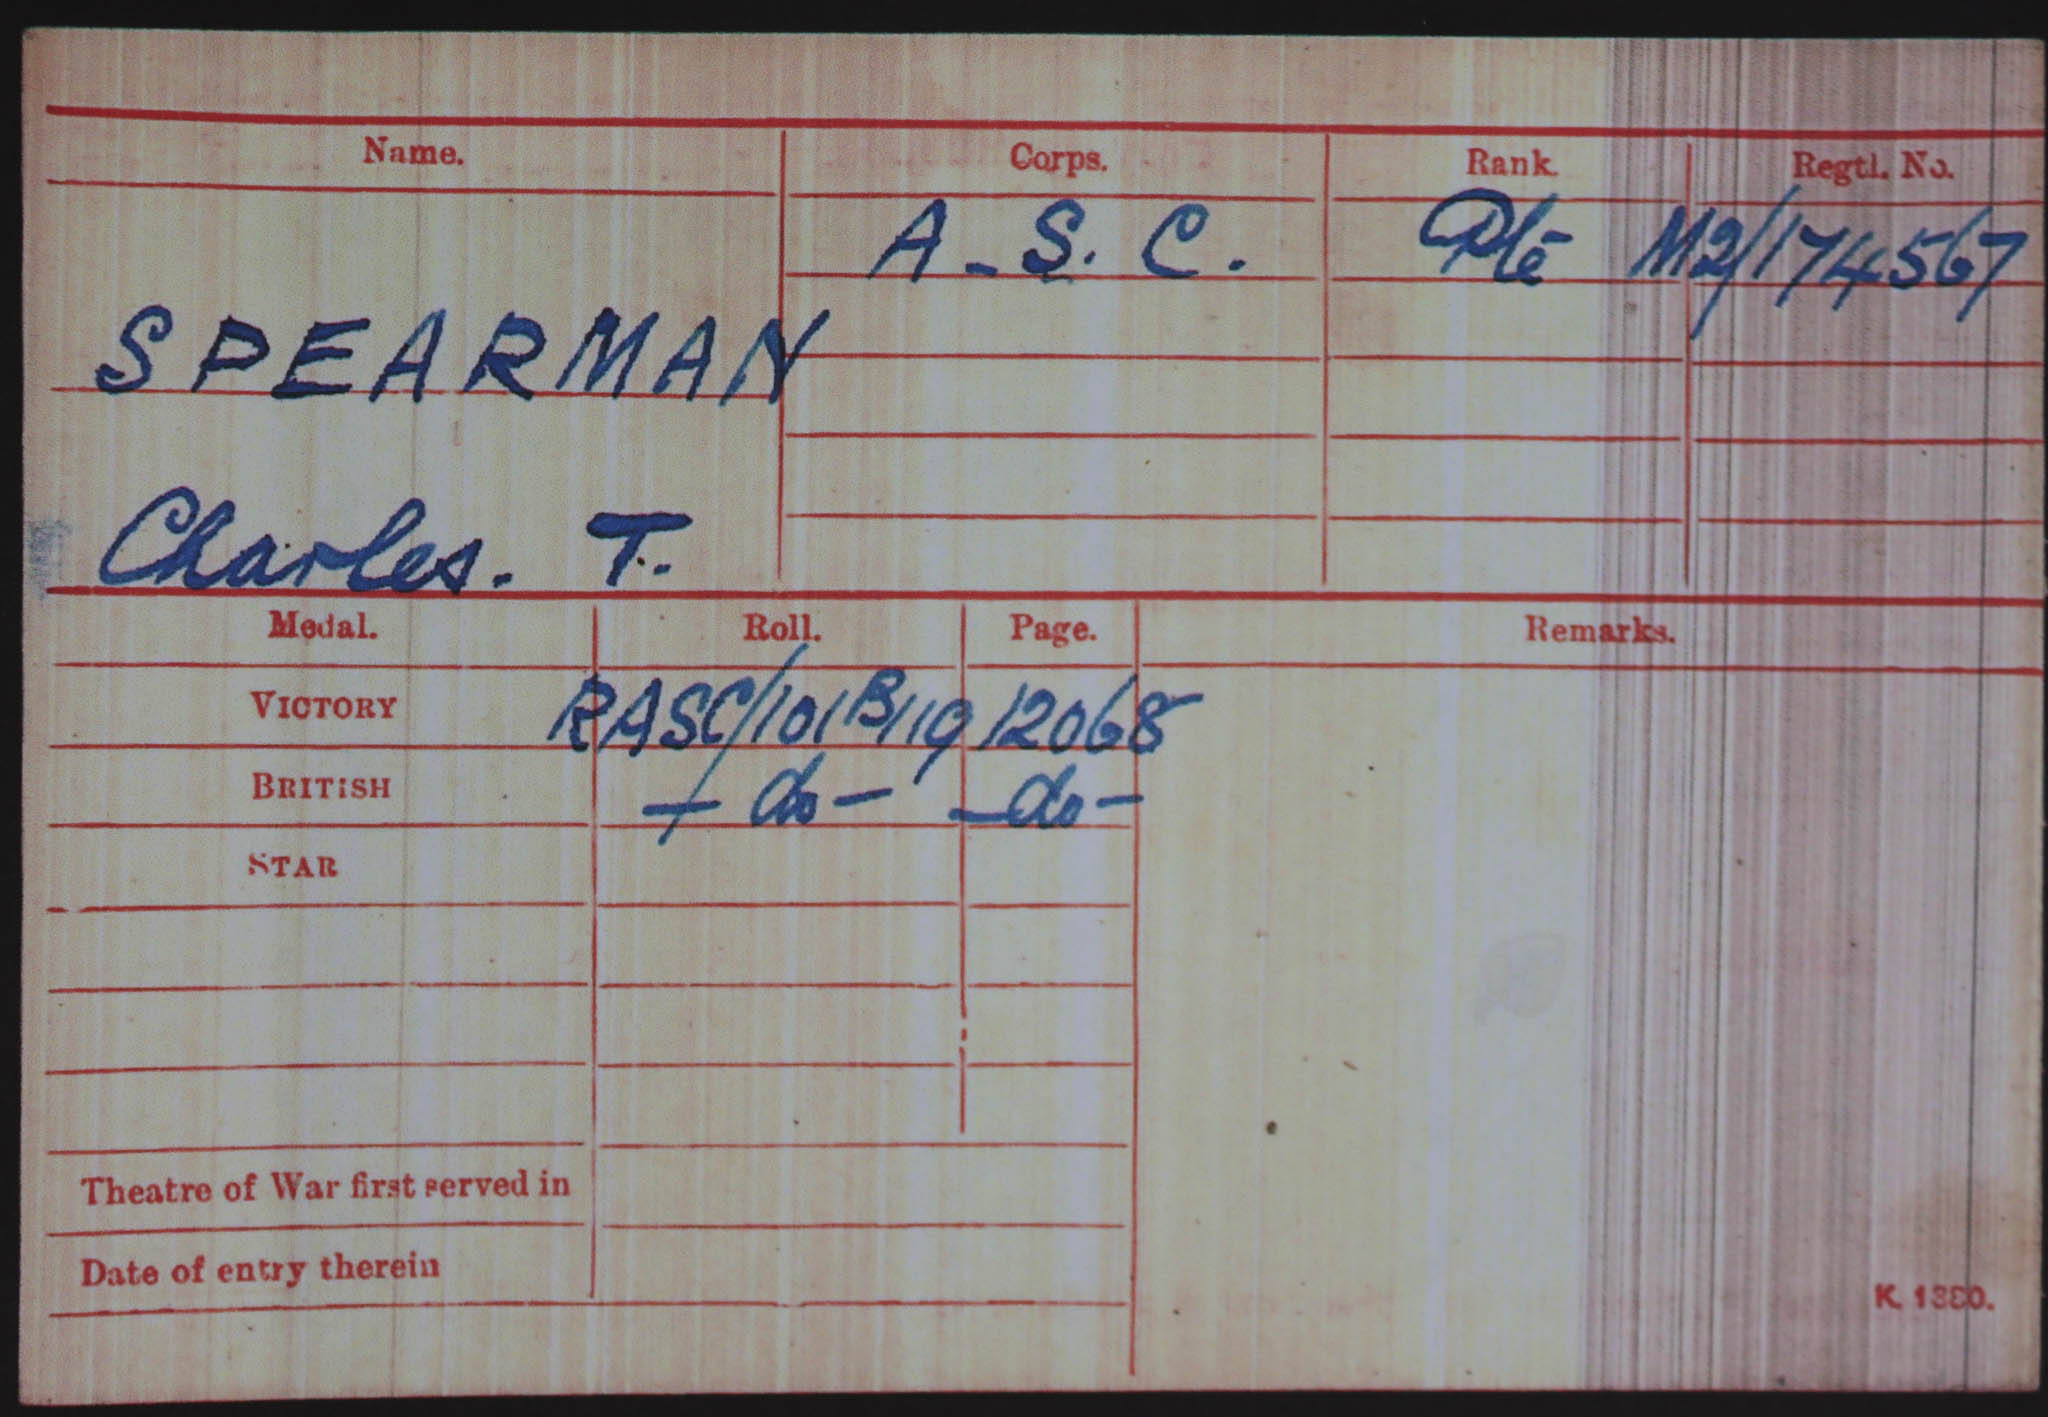 Name. Corps. Rank. Regtl. No.
A. S. C. Pte M2/174567
SPEARMAN
Charles. T.
Medal. Roll. Page. Remarks.
VICTORY RASC/101B119 12068
BRITISH - do - - do -
STAR
Theatre of War first served in
Date of entry therein
K. 1380.